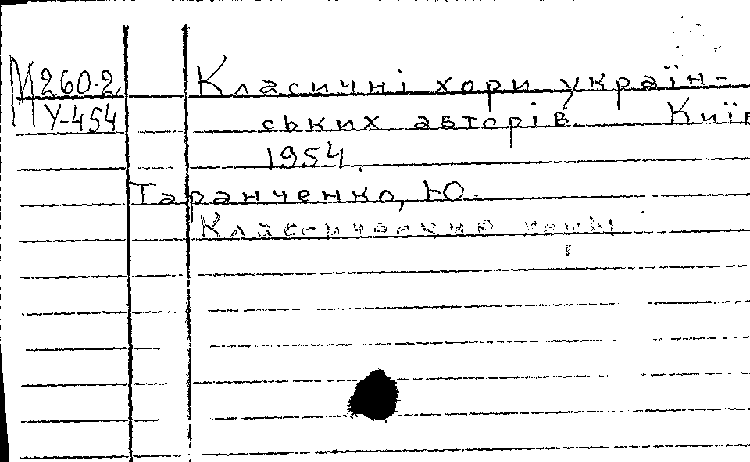 М260.2 Класичні хори україн-
У-454 ських авторів. Київ
1954.
Таранченко, Ю.
Классические хоры